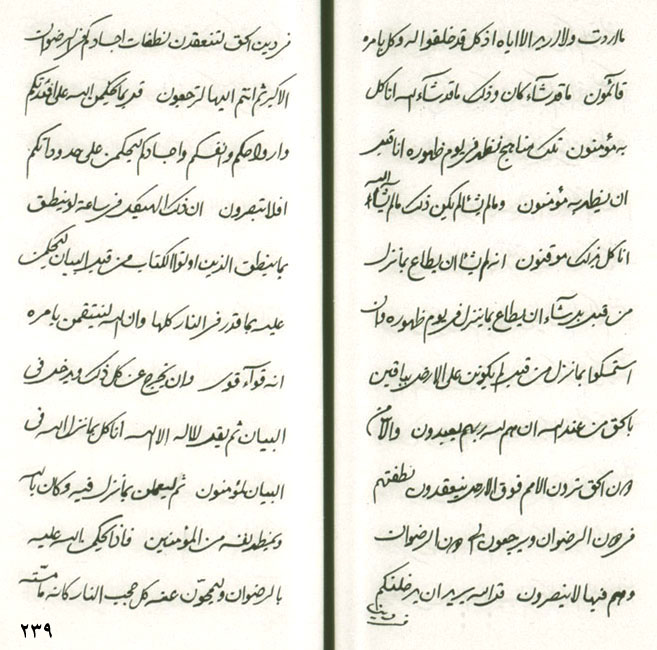 ما اردت ولا ارید الا ایاه اذ کل قد خلقوا له وکل بامره
قائمون ما قد شآء کان وذلک ما قد شآء الله اناکل
به مؤمنون تلک مناهج تظهر فی یوم ظهوره اناقبل
ان یظهر به مؤمنون ومالم یشألم یکن ذلک مالم یشأ الله
اناکل بذلک موقنون انه لم یشأ ان یطاع بمانزل
من قبل بل شآء ان یطاع بماینزل فی یوم ظهوره وان
استمسکوا بمانزل من قبل لم یکونن علی الارض باقین
بالحق من عند الله ان هم لله ربهم یعبدون والا من
دون الحق ترون الامم فوق الارض ینعقدون نطفتهم
فی دون الرضوان ویرجعون الی دون الرضوان
وهم فیها لا ینصرون قد الله یرید ان یدخلنکم
فی دینه
فی دین الحق لتنعقدن نطفات اجسادکم فی الرضوان
الاکبر ثم انتم الیها لترجعون قد بما حکمن الله علی افئدتکم
وارواحکم وانفسکم واجسادکم لتحکمن علی حدوداتکم
افلا تبصرون ان ذلک الهیکل فی ساعة لو ینطق
بماینطق الذین اوتوا الکتاب من قبل البیان لتحکمن
علیه بماقدر فی النار کلها وان الله لینتقمن بامره
انه قوآء قوی وان یخرج عن کل ذلک ویدخل فی
البیان ثم یقل لااله الا الله اناکل بمانزل الله فی
البیان لمؤمنون ثم لیعملن بمانزل فیه وکان بالله
وبمن یظهره من المؤمنین فاذا لحکم الله علیه
بالرضوان ولیمحون عنه کل حجب النار کانه مامسته
٢٣٩